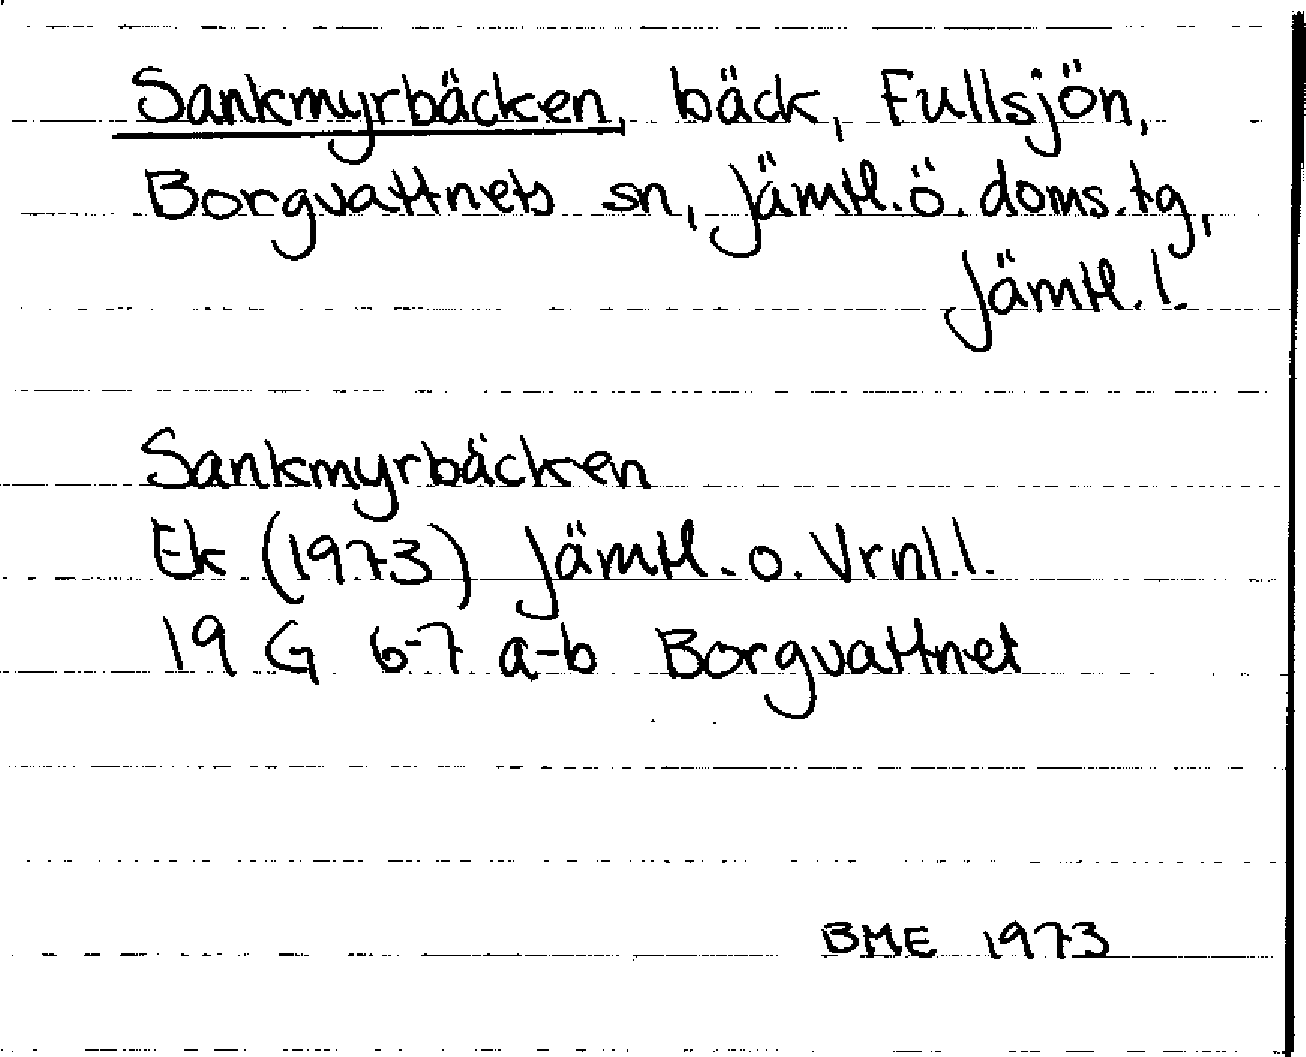 Sankmyrbäcken, bäck, Fullsjön,
Borgvattnets sn, Jämtl.ö.doms.tg,
Jämtl.l.
Sankmyrbäcken
Ek (1973) Jämtl.o.Vrnl.l.
19 G 6-7 a-b Borgvattnet
BME 1973